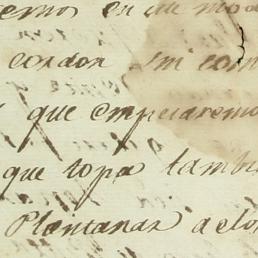 en
cordon mi com
que empesaremo
que topa tambi
Plantanar a elo